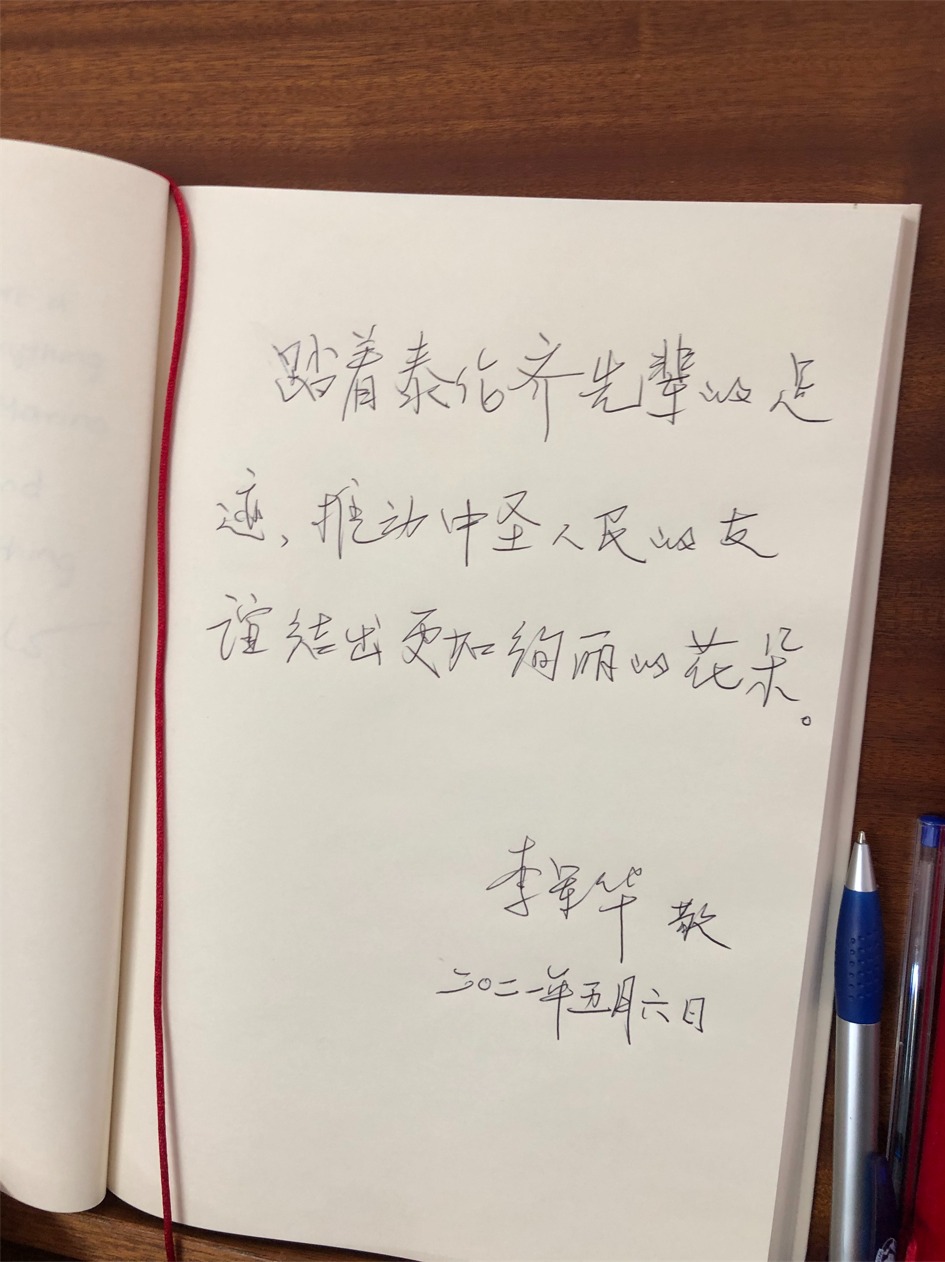 踏着泰伯齐先辈的足
迹，推动中圣人民的友
谊结出更加绚丽的花朵。
李军华 敬
二〇二一年五月六日